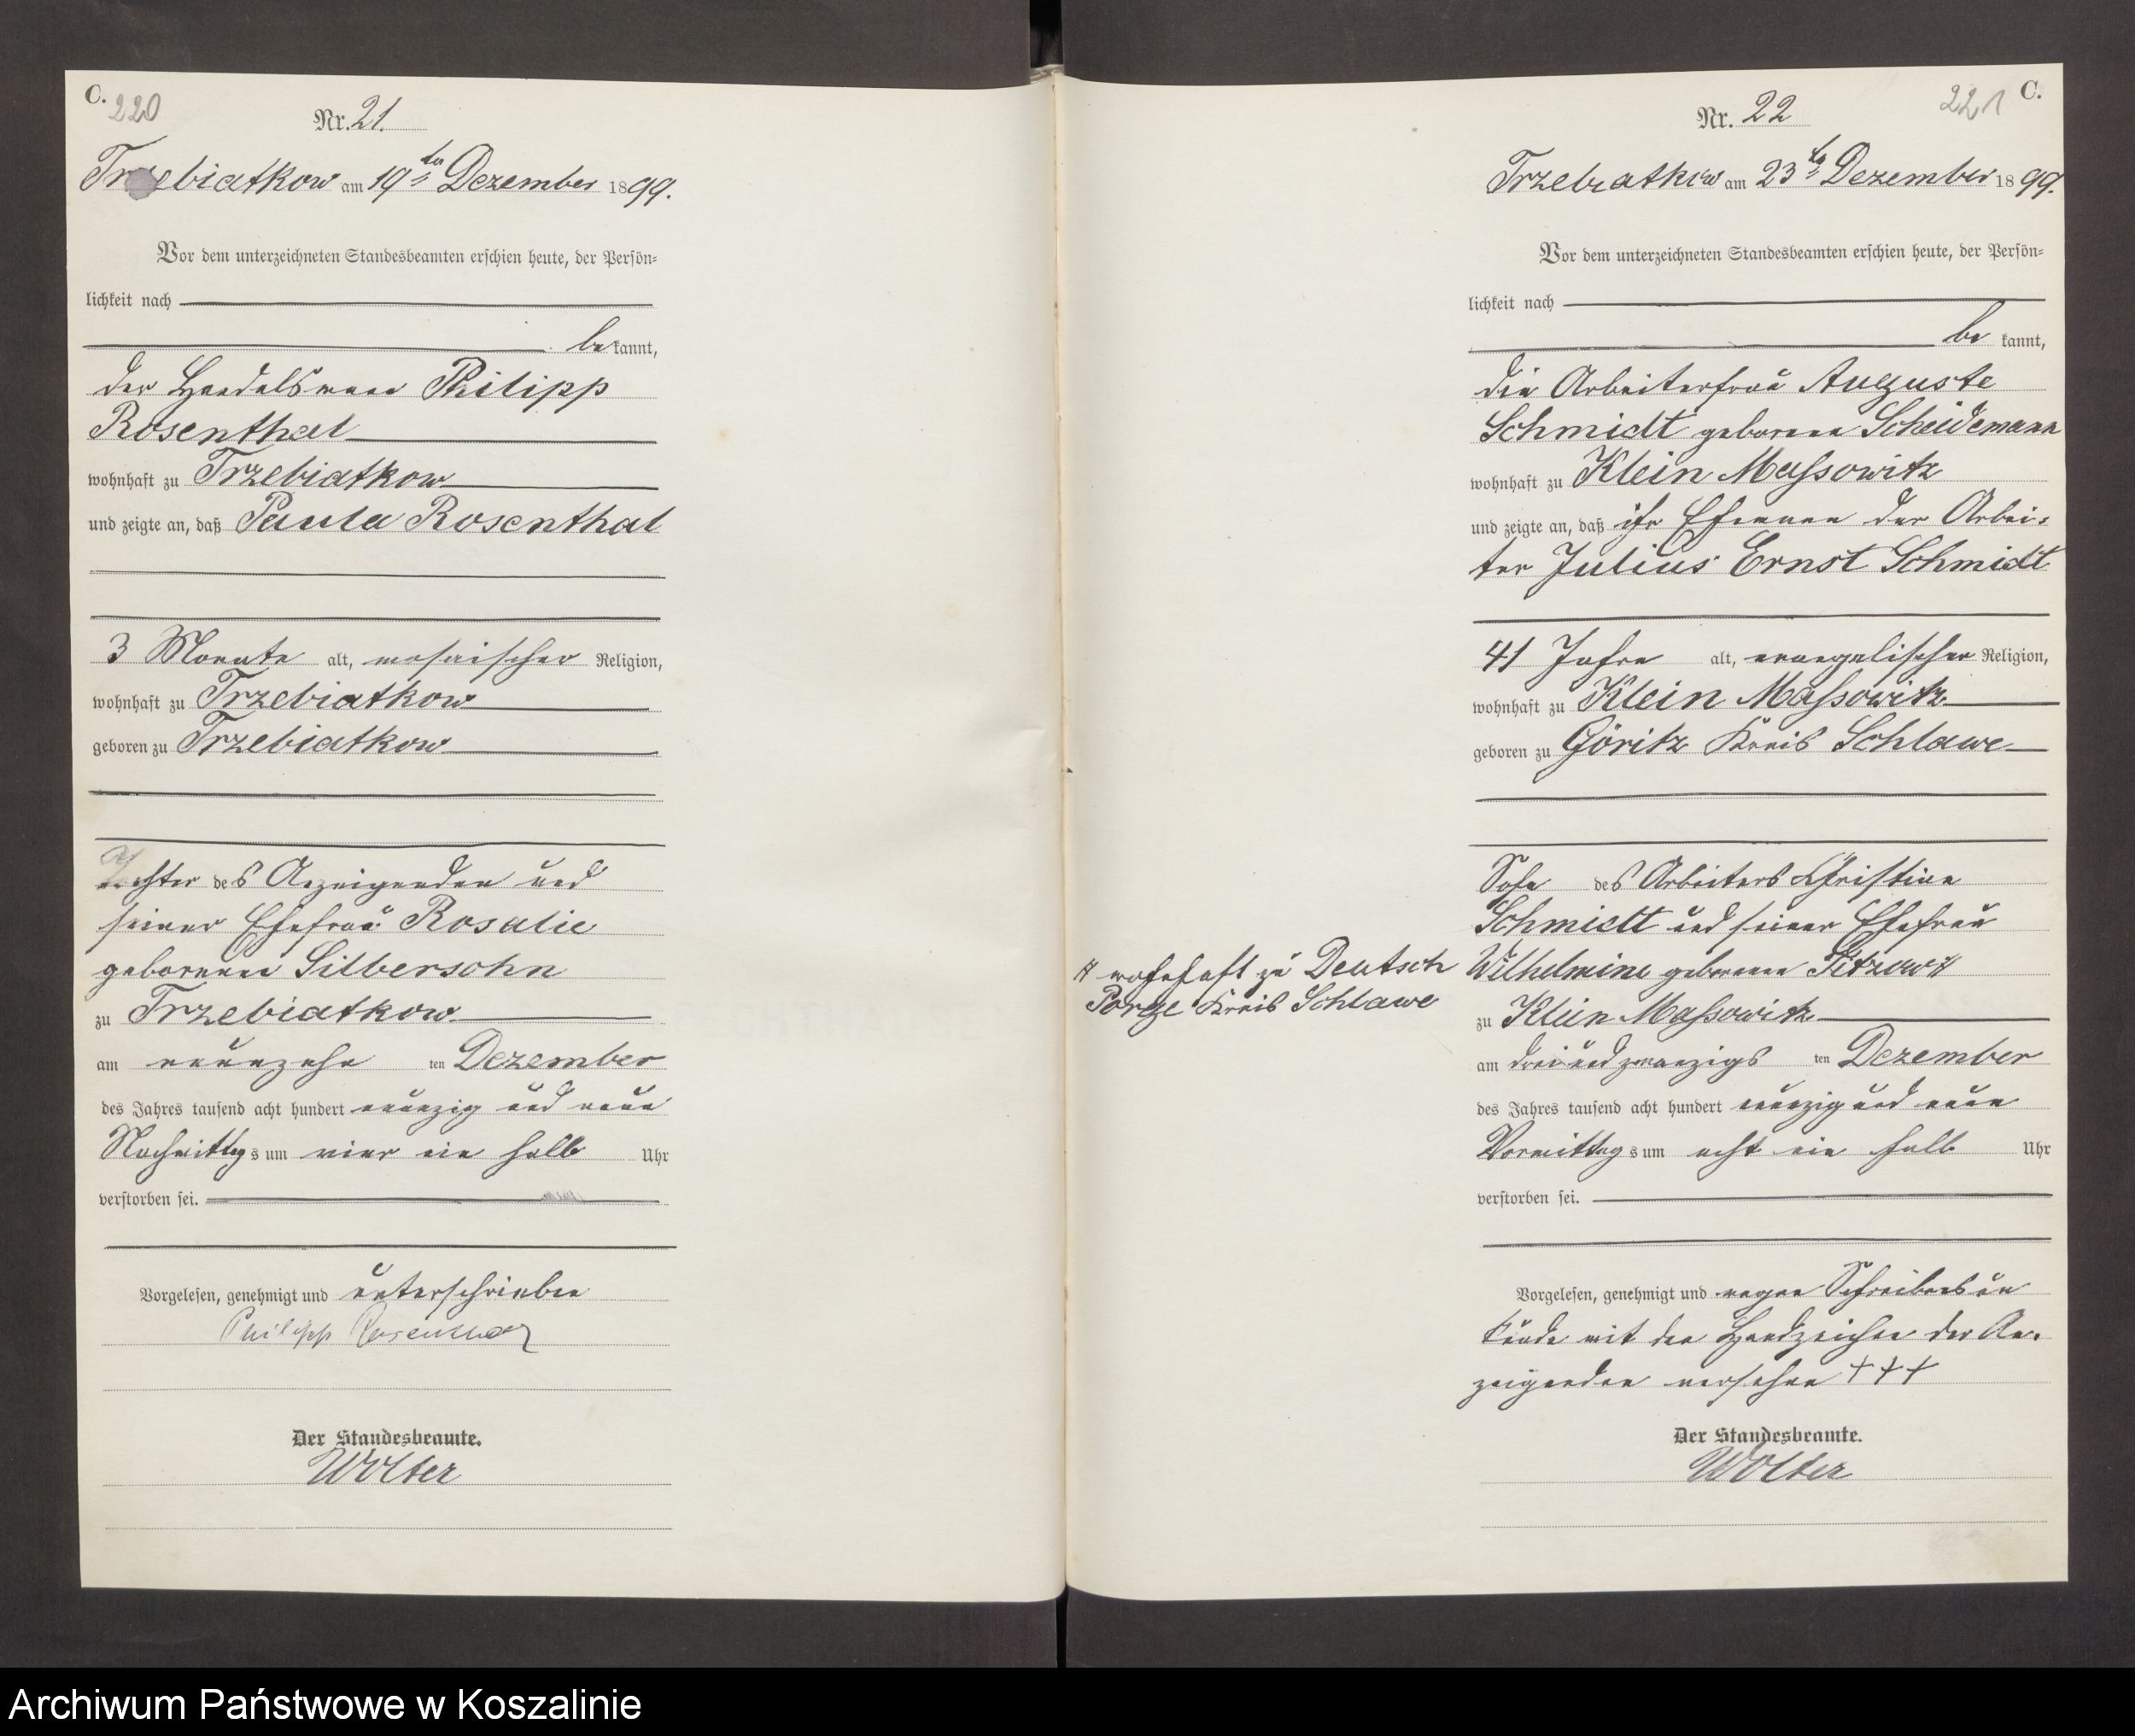 C.
220
Nr. 21.
Trzebiatkow am 19ten Dezember 1899.
Vor dem unterzeichneten Standesbeamten erschien heute, der Persön-
lichkeit nach
be kannt,
der Handelsmann Philipp
Rosenthal
wohnhaft zu Trzebiatkow
und zeigte an, daß Paula Rosenthal
3 Monate alt, mosaischer Religion,
wohnhaft zu Trzebiatkow
geboren zu Trzebiatkow
Tochter des Anzeigenden und
seiner Ehefrau Rosalie
geborenen Silbersohn
zu Trzebiatkow
am neunzehn ten Dezember
des Jahres tausend acht hundert neunzig und neun
Nachmittags um vier ein halb Uhr
verstorben sei.
Vorgelesen, genehmigt und unterschrieben
Philipp Rosenthal
Der Standesbeamte.
Wolter
221
C.
Nr. 22
Trzebiatkow am 23ten Dezember 1899.
Vor dem unterzeichneten Standesbeamten erschien heute, der Persön-
lichkeit nach
be kannt,
die Arbeiterfrau Auguste
Schmidt geborene Scheidemann
wohnhaft zu Klein Massowitz
und zeigte an, daß ihr Ehemann der Arbei-
ter Julius Ernst Schmidt
41 Jahre alt, evangelischer Religion,
wohnhaft zu Klein Massowitz
geboren zu Göritz Kreis Schlawe
Sohn des Arbeiters Christian
Schmidt und seiner Ehefrau
Wilhelmine geborenen
# wohnhaft zu Deutsch
Kreis Schlawe
zu Klein Massowitz
am dreiundzwanzigs ten Dezember
des Jahres tausend acht hundert neunzig und neun
Vormittags um acht ein halb Uhr
verstorben sei.
Vorgelesen, genehmigt und wegen Schreibensun
kunde mit den Handzeichen der An-
zeigenden versehen †††
Der Standesbeamte.
Wolter
Archiwum Państwowe w Koszalinie